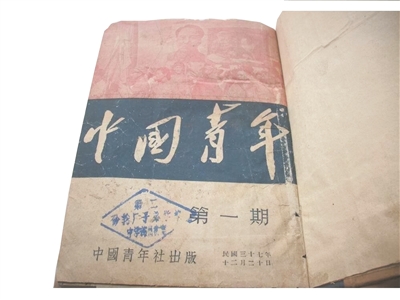 中国青年
第一期
中國青年社出版
民國三十七年
十二月二十日
第二